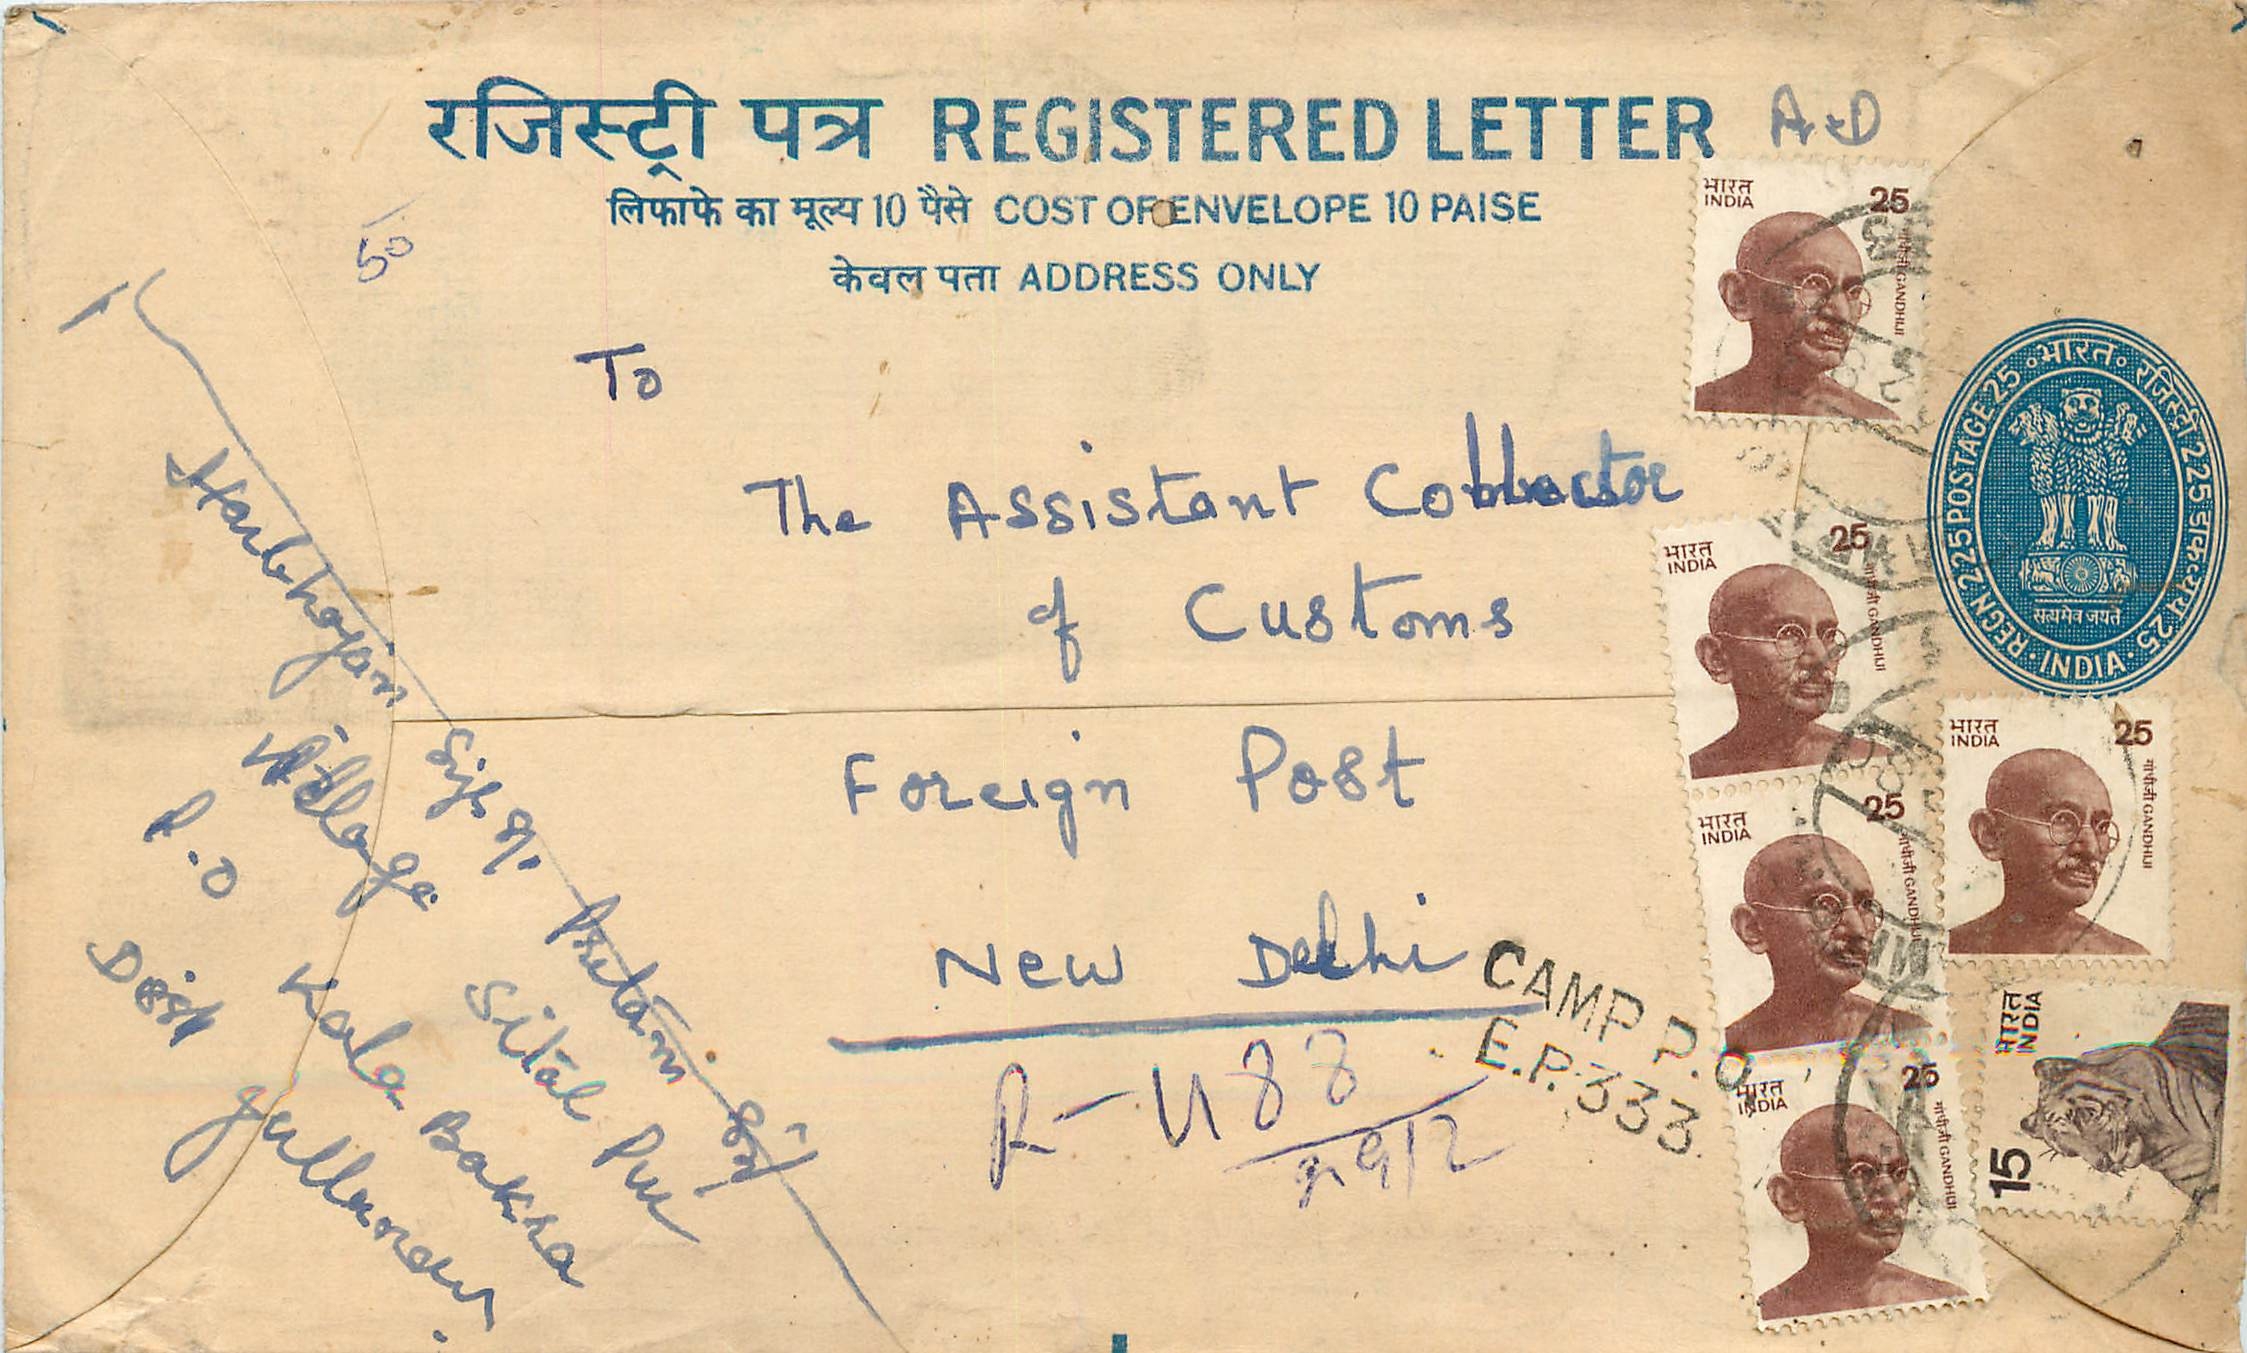 रजिस्ट्री पत्र REGISTERED LETTER A.D
लिफाफे का मूल्य 10 पैसे COST OF ENVELOPE 10 PAISE
केवल पता ADDRESS ONLY
50
To
The Assistant Collector
of Customs
Foreign Post
New Delhi
CAMP P.O
E.P. 333.
R-488
Harbhajan Singh S/o Pritam Singh
Village Sital Pur
P.O Kala Bakra
Distt Jullundur
भारत 25
INDIA
गांधीजी GANDHIJI
भारत 25
INDIA
गांधीजी GANDHIJI
भारत 25
INDIA
गांधीजी GANDHIJI
भारत 25
INDIA
गांधीजी GANDHIJI
भारत 25
INDIA
गांधीजी GANDHIJI
भारत
INDIA
15
REGN 225 POSTAGE 25 भारत रजिस्ट्री 225 डाक व्यय 25 INDIA
सत्यमेव जयते